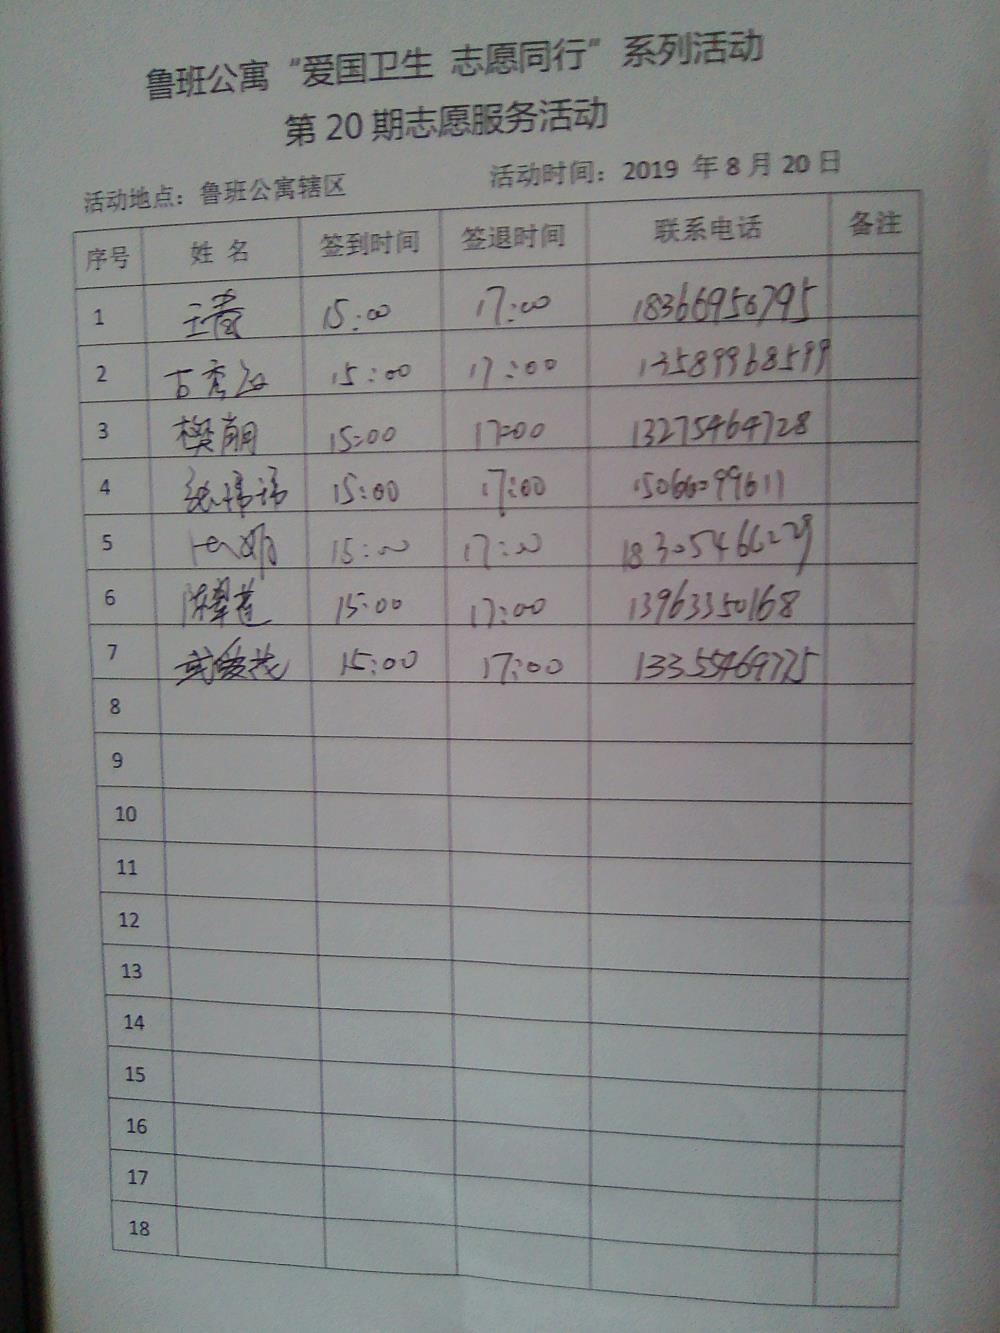 鲁班公寓“爱国卫生 志愿同行”系列活动
第 20 期志愿服务活动
活动地点：鲁班公寓辖区 活动时间：2019 年 8 月 20 日
序号 姓 名 签到时间 签退时间 联系电话 备注
1 15:00 17:00 18366956795
2 15:00 17:00 13589968599
3 樊萌 15:00 17:00 13275464728
4 15:00 17:00 15066099611
5 15:00 17:00 18305466229
6 陈翠莲 15:00 17:00 13963350168
7 15:00 17:00 13355469775
8
9
10
11
12
13
14
15
16
17
18